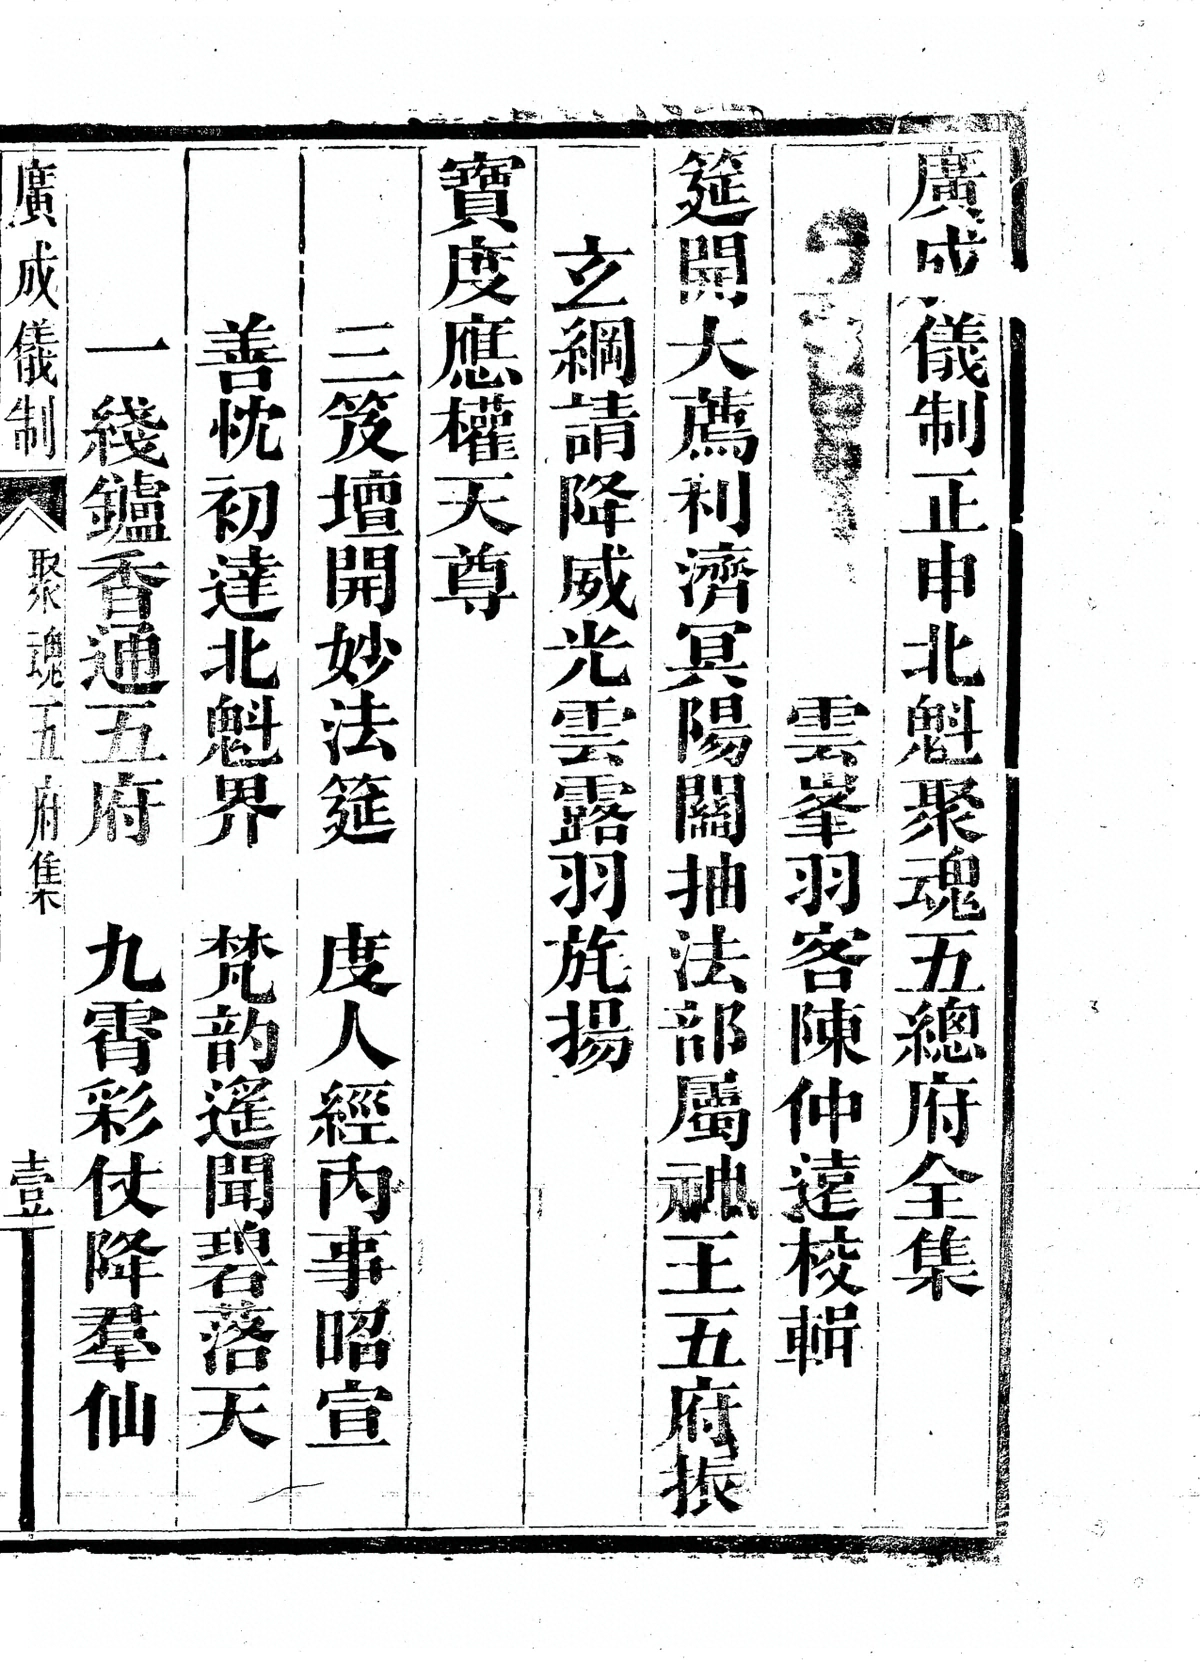 廣成儀制正申北魁聚魂五總府全集
雲峯羽客陳仲遠校輯
筵開大薦利濟冥陽關抽法部屬神王五府振
玄綱請降威光雲露羽旄揚
寶度應權天尊
三笈壇開妙法筵　度人經內事昭宣
善忱初達北魁界　梵韵遙聞碧落天
一綫鑪香通五府　九霄彩仗降羣仙
廣成儀制　聚魂五府集　壹